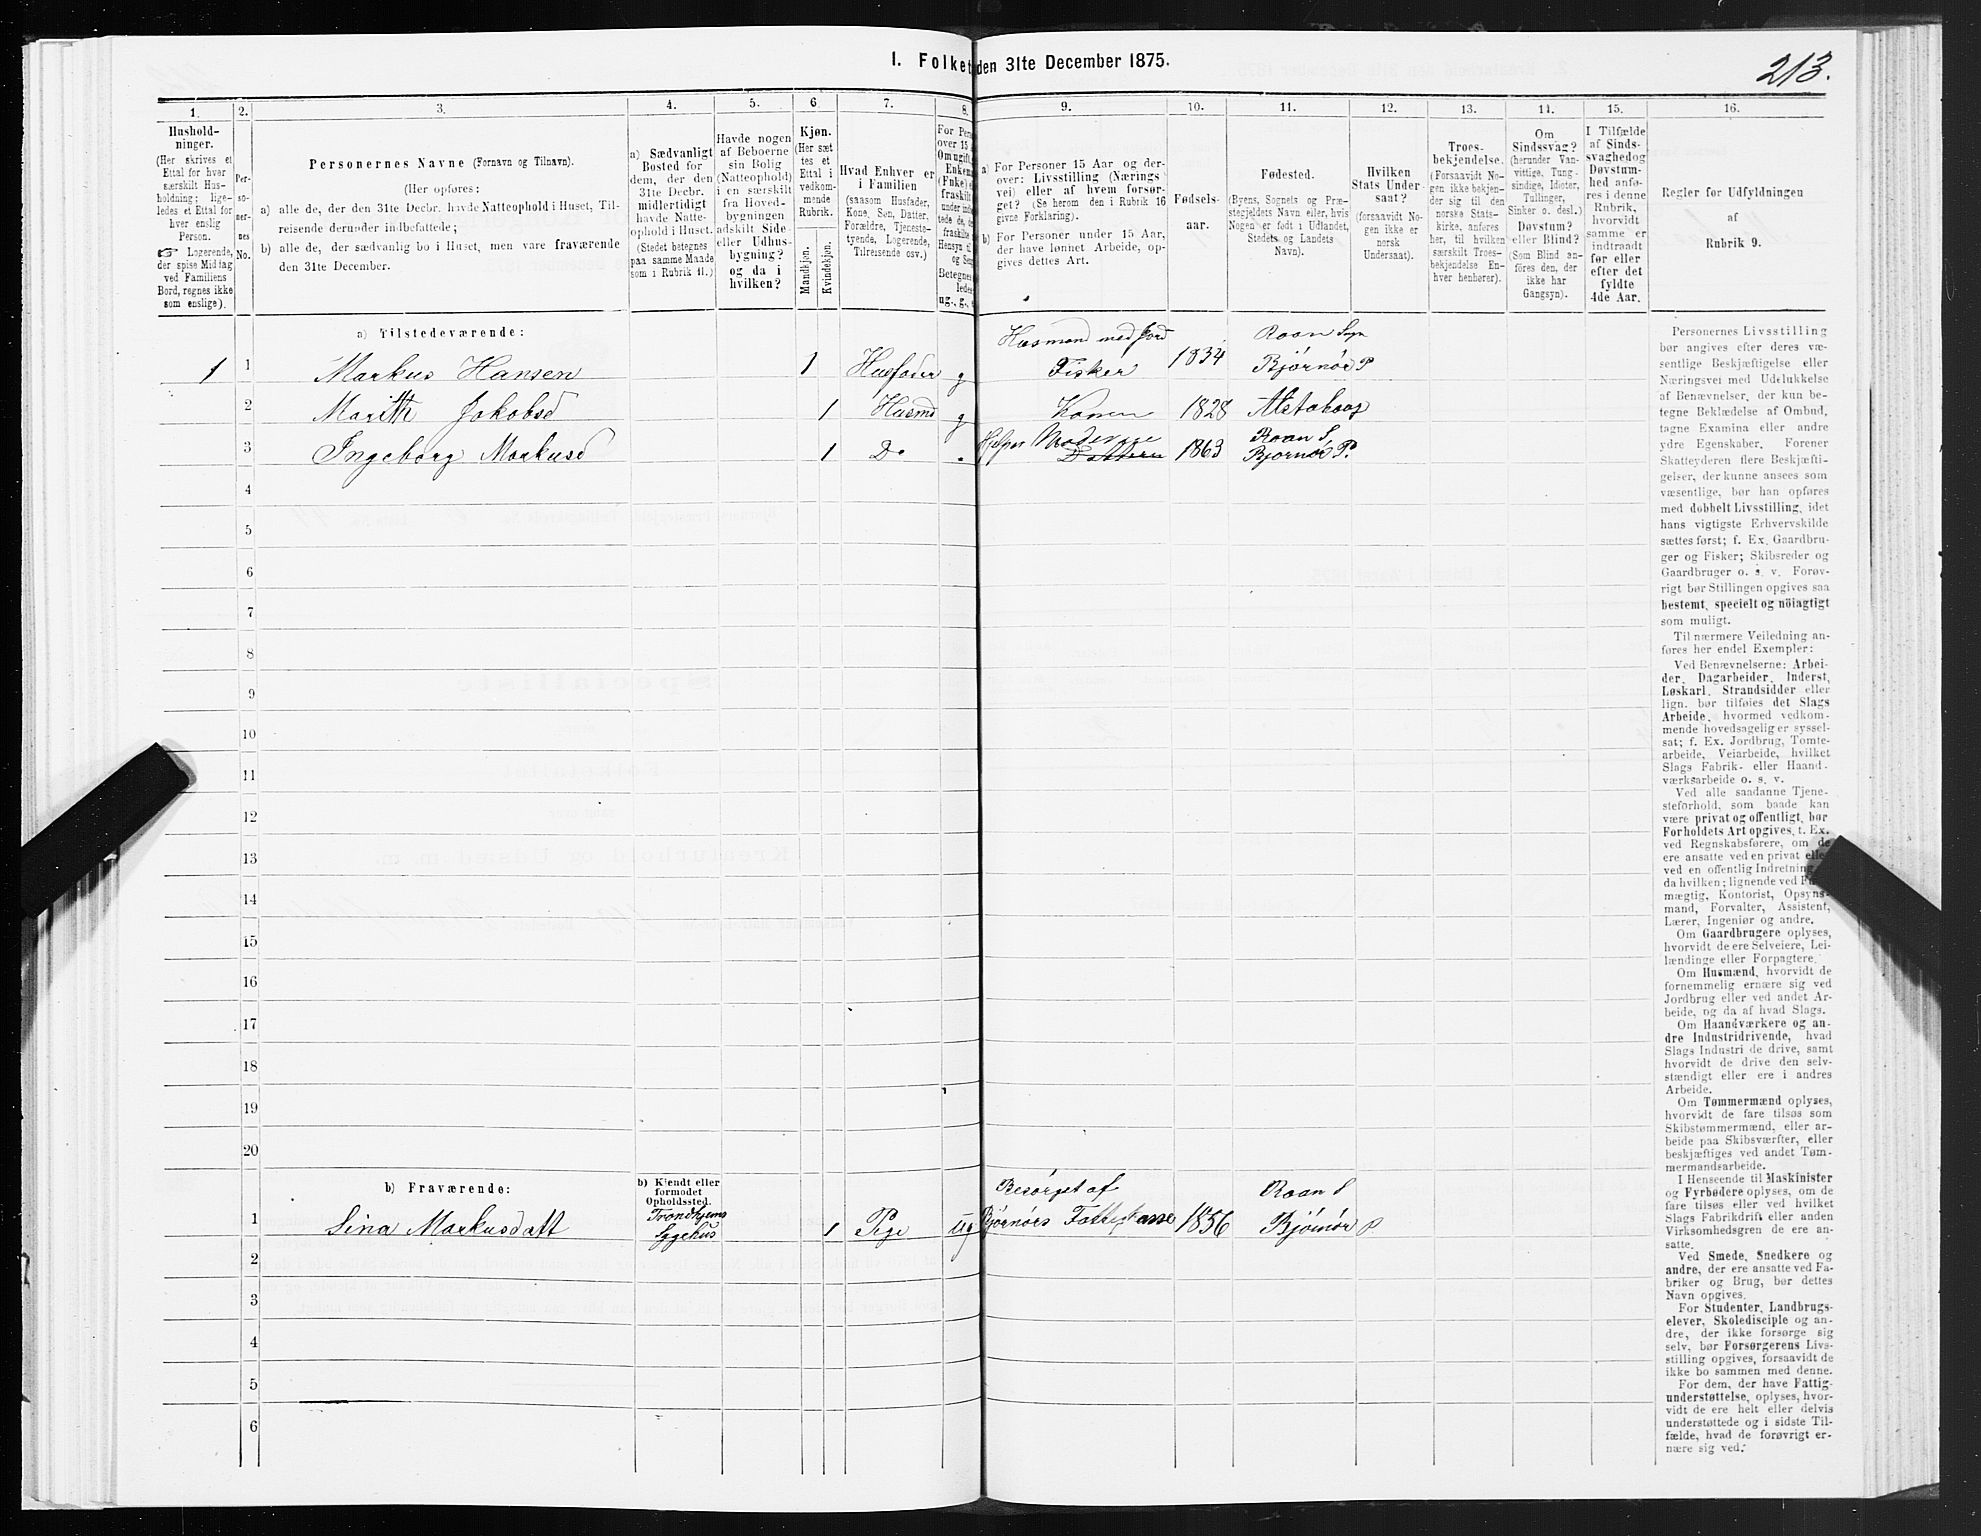 I. Folket den 31te December 1875.
213.
1.
2.
3.
4.
5.
6.
7.
8.
9.
10.
11.
12.
13.
14.
15.
16.
Hushold-
ninger.
(Her skrives et
Ettal for hver
særskilt Hus-
holdning; lige-
ledes et Ettal for
hver enslig
Person.
☞ Logerende,
der spise Middag
ved Familiens
Bord, regnes ikke
som enslige).
Per-
so-
ner-
nes
No.
Personernes Navne (Fornavn og Tilnavn).
(Her opføres:
a) alle de, der den 31te Decbr. havde Natteophold i Huset, Til-
reisende derunder indbefattede;
b) alle de, der sædvanlig bo i Huset, men vare fraværende
den 31te December.
a) Sædvanligt
Bosted for
dem, der den
31te Decbr.
midlertidigt
havde Natte-
ophold i Huset.
(Stedet betegnes
paa samme Maade
som i Rubrik 11.)
Havde nogen
af Beboerne
sin Bolig
(Natteophold)
i en særskilt
fra Hoved-
bygningen
adskilt Side-
eller Udhus-
bygning?
og da i
hvilken?
Kjøn.
(Her sæt
tes et
Ettal i
vedkom-
mende
Rubrik.
Mandkjøn.
Kvindekjøn.
Hvad Enhver er
i Familien
(saasom Husfader,
Kone, Søn, Datter,
Forældre, Tjeneste-
tyende, Logerende,
Tilreisende osv.)
For Pers
over 15 A
Om ugift,
Enkem
(Enke) e
fraskilt
under ind
tede de,
fraskilte
Hensyn t
og Sen
Betegnes
ledes
ug., g., e
a) For Personer 15 Aar og der-
over: Livsstilling (Nærings
vei) eller af hvem forsør-
get? (Se herom den i Rubrik 16
givne Forklaring).
b) For Personer under 15 Aar,
der have lønnet Arbeide, op-
gives dettes Art.
Fødsels-
aar.
Fødested.
(Byens, Sognets og Præ-
stegjeldets Navn eller, hvis
Nogen er født i Udlandet,
Stedets og Landets
Navn).
Hvilken
Stats Under-
saat?
(forsaavidt No-
gen ikke er
norsk
Undersaat).
Troes-
bekjendelse.
(Forsaavidt No-
gen ikke bekjen-
der sig til den
norske Stats-
kirke, anføres
her, til hvilken
særskilt Troes-
bekjendelse En-
hver henhører).
Om
Sindssvag?
(herunder Van-
vittige, Tung-
sindige, Idioter,
Sinker o. desl.)
Døvstum?
eller Blind?
(Som Blind an-
føres den, der
ikke har
Gangsyn).
I Tilfælde
af Sinds-
svaghed og
Døvstum-
hed anfø-
res i denne
Rubrik,
hvorvidt
samme er
indtraadt
før eller
efter det
fyldte
4de Aar.
Regler for Udfyldningen
af
Rubrik 9.
a) Tilstedeværende:
Husmand med Jord Roan Sogn
1 1 Markus Hansen 1 Husfader g Fisker 1834 Bjørnør P
2 Marith Jakobsd 1 Husmd g Konen 1828 Alstahoug
3 Ingeborg Markusd 1 Do Hjelper Moder 1863 Roan S
Datteren Bjørnør P.
4
5
6
7
8
9
10
11
12
13
14
15
16
17
18
19
20
b) Fraværende:
b) Kjendt eller
formodet
Opholdssted.
Besørget af Roan S
1 Sina Markusdatt Trondhjems
Sygehus 1 Pige ug Bjørnørs Fattigkasse 1856 Bjørnør P
2
3
4
5
6
Personernes Livsstilling
bør angives efter deres væ-
sentlige Beskjæftigelse eller
Næringsvei med Udelukkelse
af Benævnelser, der kun be-
tegne Beklædelse af Ombud,
tagne Examina eller andre
ydre Egenskaber. Forener
Skatteyderen flere Beskjæfti-
gelser, der kunne ansees som
væsentlige, bør han opføres
med dobbelt Livsstilling, idet
hans vigtigste Erhvervskilde
sættes først; f. Ex. Gaardbru-
ger og Fisker; Skibsreder og
Gaardbruger o. s. v. Forøv-
rigt bør Stillingen opgives saa
bestemt, specielt og nöiagtigt
som muligt.
Til nærmere Veiledning an-
føres her endel Exempler:
Ved Benævnelserne: Arbei-
der, Dagarbeider, Inderst,
Løskarl, Strandsidder eller
lign. bør tilføies det Slags
Arbeide, hvormed vedkom-
mende hovedsagelig er syssel-
sat; f. Ex. Jordbrug, Tomte-
arbeide, Veiarbeide, hvilket
Slags Fabrik- eller Haand-
værksarbeide o. s. v.
Ved alle saadanne Tjene-
steforhold, som baade kan
være privat og offentligt, bør
Forholdets Art opgives, t. Ex.
ved Regnskabsførere, om de
ere ansatte ved en privat elle
ved en offentlig Indretning
da hvilken; lignende ved Fu
mægtig, Kontorist, Opsyns-
mand, Forvalter, Assistent,
Lærer, Ingeniør og andre.
Om Gaardbrugere oplyses,
hvorvidt de ere Selveiere, Lei-
lændinge eller Forpagtere.
Om Husmænd, hvorvidt de
fornemmelig ernære sig ved
Jordbrug eller ved andet Ar-
beide, og da af hvad Slags.
Om Haandværkere og an-
dre Industridrivende, hvad
Slags Industri de drive, samt
hvorvidt de drive den selv-
stændigt eller ere i andres
Arbeide.
Om Tømmermænd oplyses,
hvorvidt de fare tilsøs som
Skibstømmermænd, eller ar-
beide paa Skibsværfter, eller
beskjæftiges ved andet Tøm-
mermandsarbeide.
I Henseende til Maskinister
og Fyrbødere oplyses, om de
fare tilsøs eller ved hvilket
Slags Fabrikdrift eller anden
Virksomhedsgren de ere an-
satte.
Ved Smede, Snedkere og
andre, der ere ansatte ved Fa-
briker og Brug, bør dettes
Navn opgives.
For Studenter, Landbrugs-
elever, Skoledisciple og an-
dre, der ikke forsørge sig
selv, bør Forsørgerens Livs-
stilling opgives, forsaavidt de
ikke bo sammen med denne.
For dem, der have Fattig-
understøttelse, oplyses, hvor-
vidt de ere helt eller delvis
understøttede og i sidste Til-
fælde, hvad de forøvrigt er-
nære sig ved.